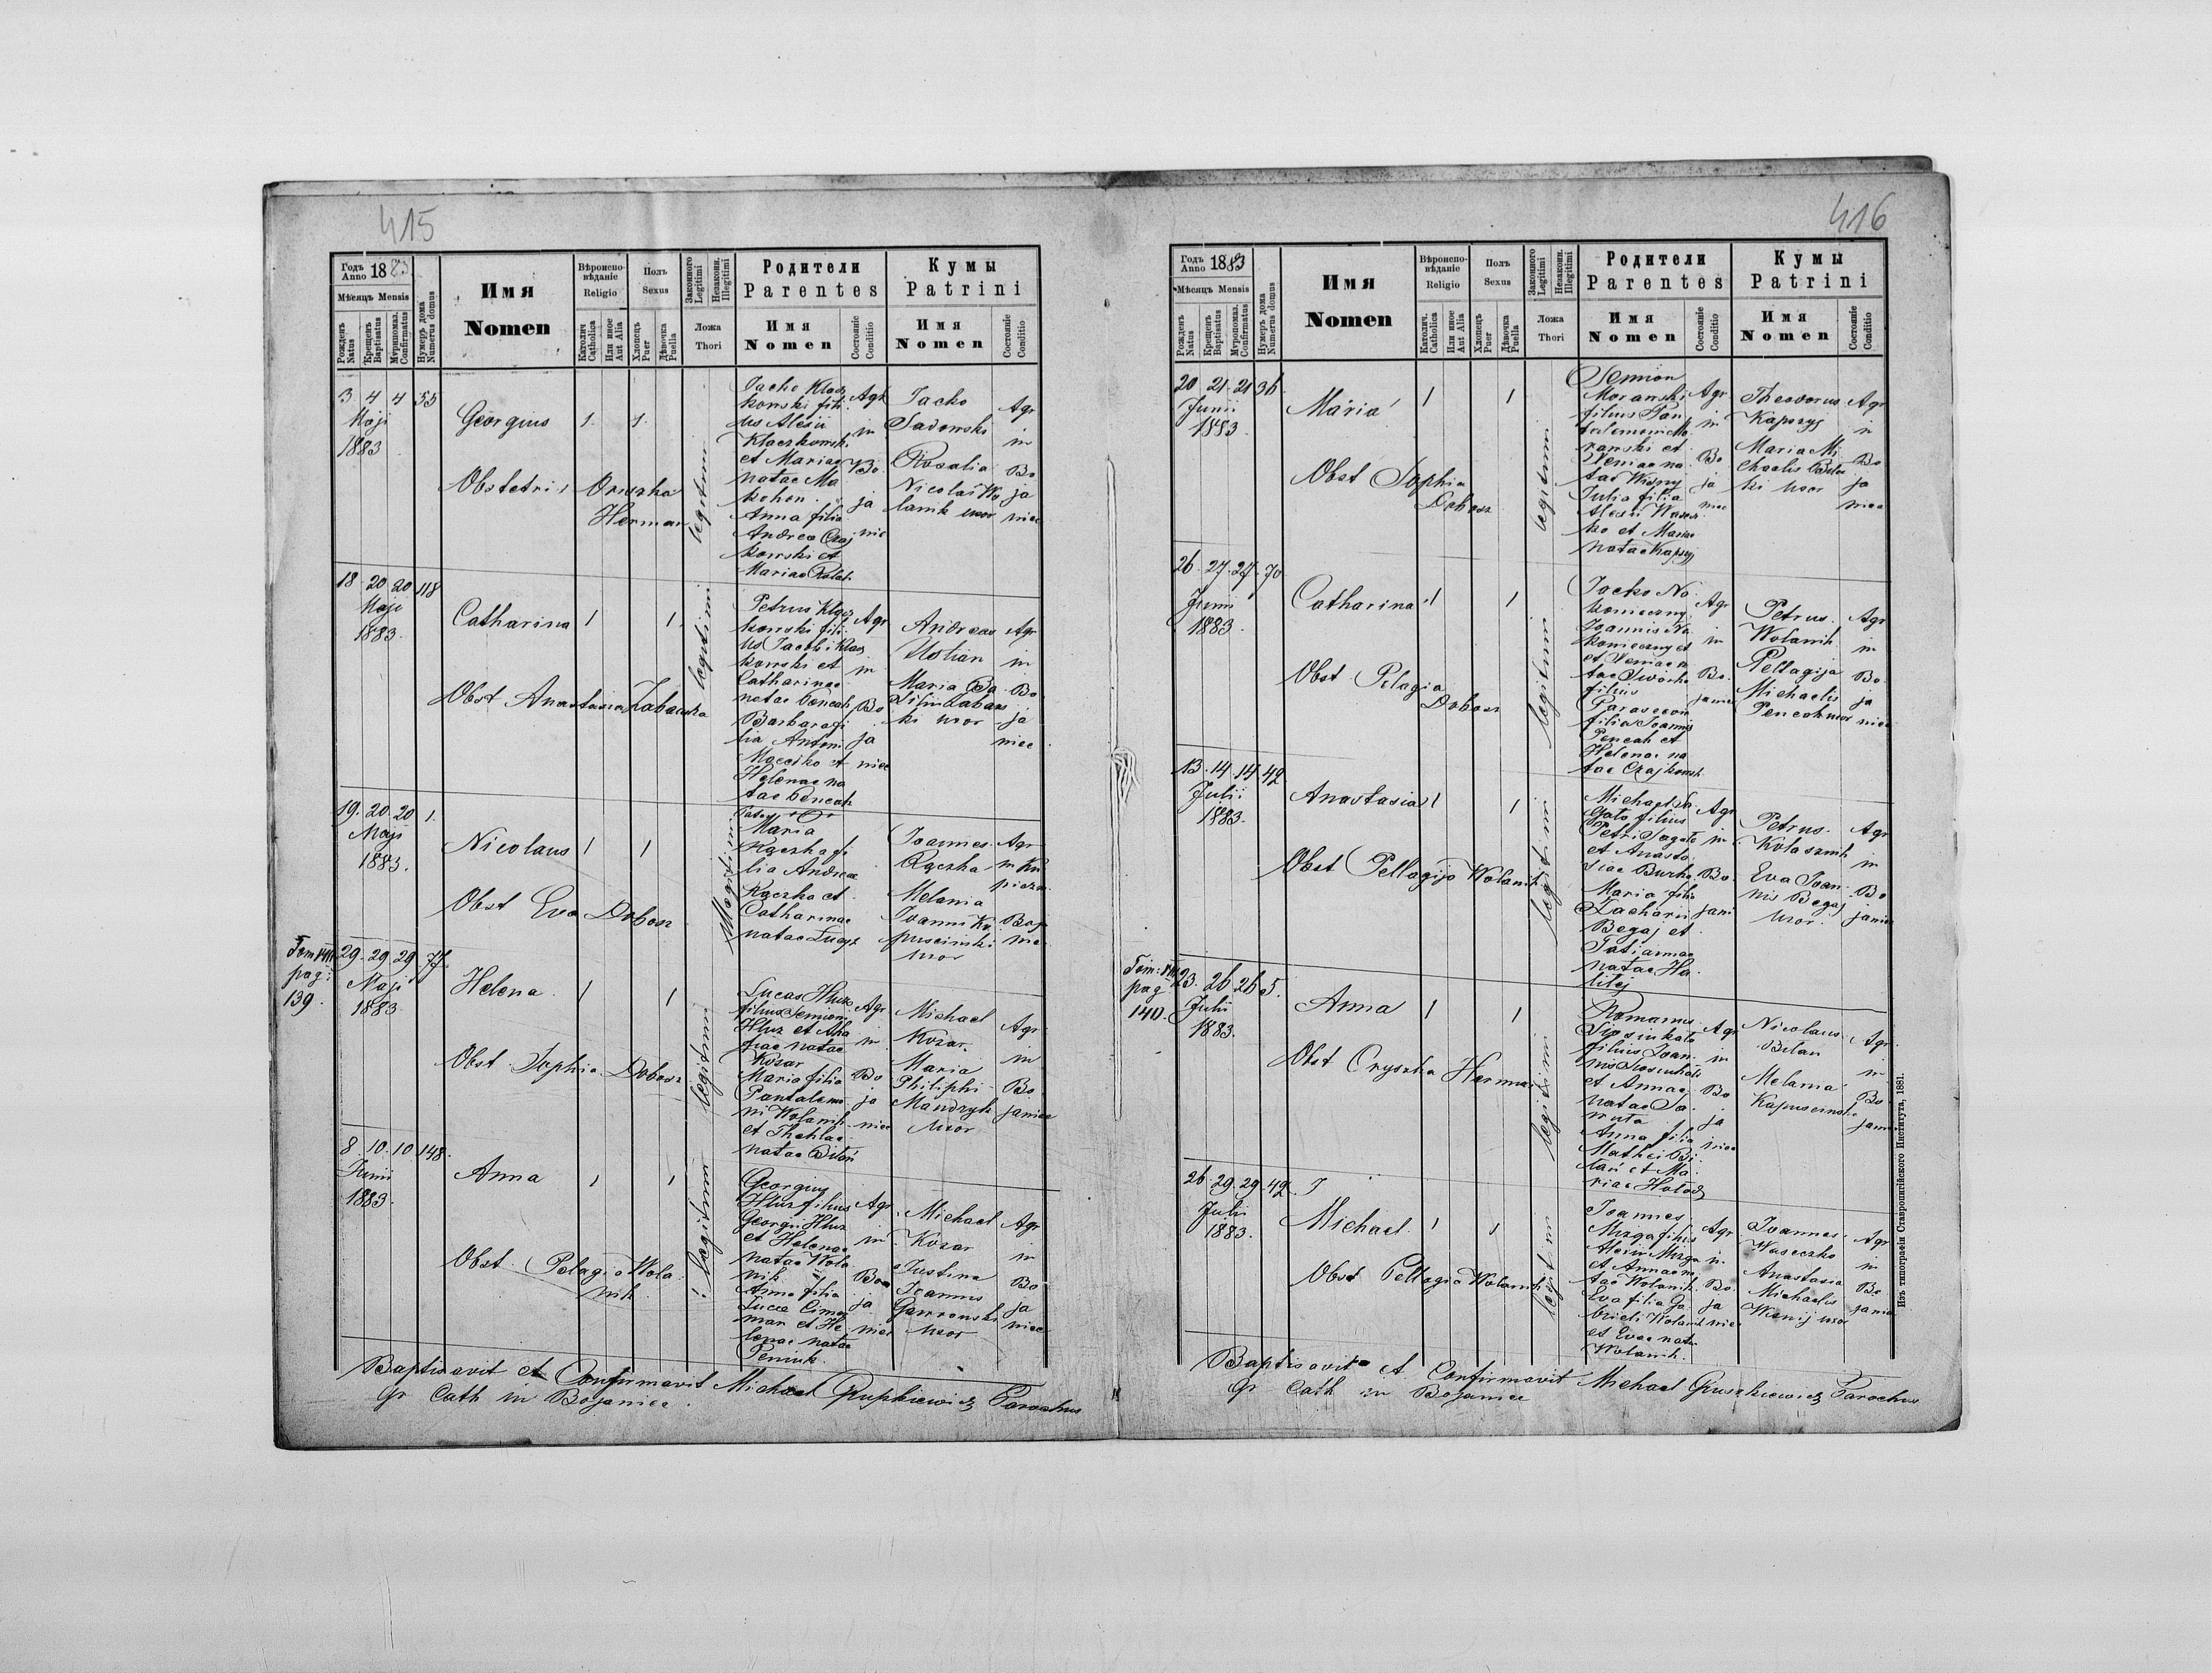 415
Годъ Anno 1883
Мѣсяцъ Mensis
Рожденъ Natus
Крещенъ Baptisatus
Мѵропомаз. Confirmatus
Нумеръ дома Numerus domus
Имя
Nomen
Вѣроиспо-
вѣданіе
Religio
Католич Catholica
Или иное Aut Alia
Полъ
Sexus
Хлопецъ Puer
Дѣвочка Puella
Законного Legitimi
Незаконн. Illegitimi
Ложа
Thori
Родители
Parentes
Имя
Nomen
Состояніе Conditio
Кумы
Patrini
Имя
Nomen
Состояніе Conditio
3 4 4 55
Maji
1883
Georgius 1. 1.
Obstetrix Oryszka
Herman
legitimi
Jacko Klacz
kowski fili
us Alexii
Klaczkowski
et Mariae
natae Ma
kohon
Anna filia
Andreae Czaj
kowski et
Mariae
Agr
in
Bo
ja
nic
Jacko
Sadowski
Rosalia
Nicolai Wo
lanik uxor
Agr
in
Bo
ja
niec
18 20 20 118
Maji
1883.
Catharina 1 1.
Obst Anastasia Zabawska
legitimi
Petrus Klacz
kowski fili
us Jacobi Klacz
kowski et
Catharinae
natae Pencak
Barbara fi
lia Antoni
Macejko et
Helenae na
tae Pencak
Agr
in
Bo
ja
niec
Andreas
Ustian
Maria Ba
silii Zabaws
ki uxor
Agr
in
Bo
ja
niec
19. 20. 20 1.
Maji
1883.
Nicolaus 1 1
Obst Eva Dobosz
Illegitimi
Pater
Maria
Kaczka fi
lia Andreae
Kaczka et
Catharinae
natae Lucyz
Joannes
Kaczka
Melania
Joannis Ka
puscinski
uxor
Agr
in
Boja
nie
Tom
pag:
139.
29. 29 29 77.
Maji
1883
Helena 1 1
Obst Sophia Dobosz
legitimi
Lucas Hluz
filius Semioni
Hluz et Aha
fiae natae
Kozar
Maria filia
Pantalemo
ni Wolanik
et Theklae
natae Bilan
Agr
in
Bo
ja
niec
Michael
Kozar
Maria
Philiphi
Mandzyk
uxor
Agr
in
Bo
janiec
8. 10. 10 148.
Junii
1883.
Anna 1 1
Obst. Pelagia Wola
nik
legitimi
Georgius
Hluz filius
Georgii Hluz
et Helenae
natae Wola
nik
Anna filia
Lucae Cimer
man et He
lenae natae
Peniuk
Agr
in
Bo
ja
niec
Michael
Kozar
Justina
Joannis
Gawronski
uxor
Agr
in
Bo
ja
niec
Baptisavit et Confirmavit Michael Gruszkiewicz Parochus
Gr Cath in Bojaniec.
416
Годъ Anno 1883
Мѣсяцъ Mensis
Рожденъ Natus
Крещенъ Baptisatus
Мѵропомаз. Confirmatus
Нумеръ дома Numerus domus
Имя
Nomen
Вѣроиспо-
вѣданіе
Religio
Католич. Catholica
Или иное Aut Alia
Полъ
Sexus
Хлопецъ Puer
Дѣвочка Puella
Законного Legitimi
Незаконн. Illegitimi
Ложа
Thori
Родители
Parentes
Имя
Nomen
Состояніе Conditio
Кумы
Patrini
Имя
Nomen
Состояніе Conditio
20 21 21 36
Junii
1883
Maria 1 1
Obst Sophia
Dobosz
legitimi
Semion
Moranski
filius Pan
talemoni Mo
ranski et
Xeniae na
tae Wisny
Julia filia
Alexii Wasecz
ko et Mariae
natae Kapszyj
Agr
in
Bo
ja
niec
Theodorus
Kapszyj
Maria Mi
chaelis
ki uxor
Agr
in
Bo
ja
niec
26. 27. 27. 70
Junii
1883
Catharina 1 1
Obst Pelagia
Dobosz
legitimi
Jacko Na
koneczny
Joannis Na
koneczny et
Xeniae na
tae
filius
Parascevia
filia Joannis
Pencak et
Helenae na
tae Czajkowsk
Agr
in
Bo
janiec
Petrus
Wolanik
Pellagija
Michaelis
Pencak uxor
Agr
in
Bo
ja
niec
13. 14 14 42
Julii
1883.
Anastasia 1 1
Obst Pellagija Wolanik
legitimi
Michael Sa
gato filius
Petri Sagato
et Anasta
siae Burko
Maria filia
Zacharii
Begaj et
Tatiannae
natae Ha
litej
Agr
in
Bo
jani
Petrus
Kolasznik
Eva Joan
nis Begaj
uxor
Agr
in
Bo
janiec
Tom:
pag
140.
23. 26 26 5.
Julii
1883.
Anna 1 1
Obst Oryszka Herman
legitimi
Romanus
filius Joan
nis
et Annae
natae
Anna filia
Mathei Bi
lan et Ma
riae Holod
Agr
in
Bo
ja
niec
Nicolaus
Bilan
Melania
Kapuscinski
Agr
in
Bo
janiec
26 29. 29. 42.
Julii
1883.
Michael 1 1
Obst Pellagia Wolanik
legitimi
Joannes
Mizga filius
Alexii Mizga
et Annae na
tae Wolanik
Eva filia Ga
brieli Wolanik
et Evae natae
Wolanik.
Agr
in
Bo
ja
niec
Joannes
Waseczko
Anastasia
Michaelis
uxor
Agr
in
Bo
janiec
Baptisavit et Confirmavit Michael Gruszkiewicz Parochus
Gr Cath in Bojaniec
Изъ типографіи Ставропигійского Института, 1881.